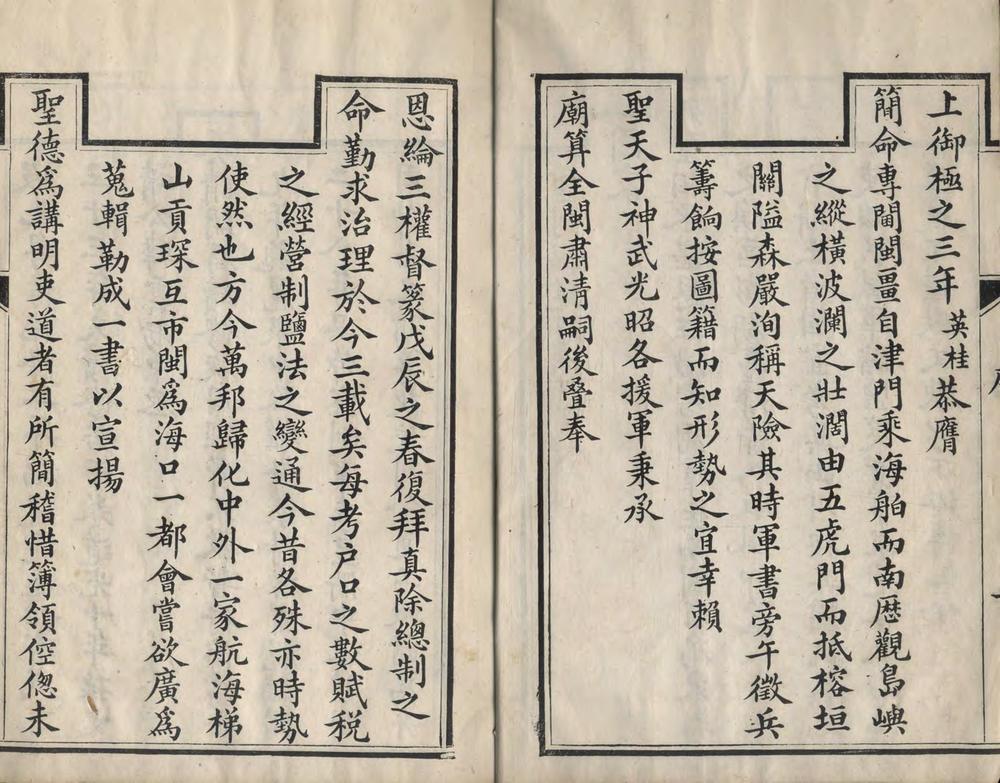 上御極之三年英桂恭膺
簡命専閫閩畺自津門乘海舶而南歷觀島嶼
之縱橫波瀾之壯濶由五虎門而抵榕垣
關隘森嚴洵稱天險其時軍書旁午徵兵
籌餉按圖籍而知形勢之宜幸賴
聖天子神武光昭各援軍秉承
廟算全閩肅清嗣後叠奉
恩綸三權督篆戊辰之春復拜真除總制之
命勤求治理於今三載矣每考户口之數賦税
之經營制鹽法之變通今昔各殊亦時勢
使然也方今萬邦歸化中外一家航海梯
山貢琛互市閩爲海口一都會嘗欲廣爲
蒐輯勒成一書以宣揚
聖德爲講明吏道者有所簡稽惜簿領倥偬未